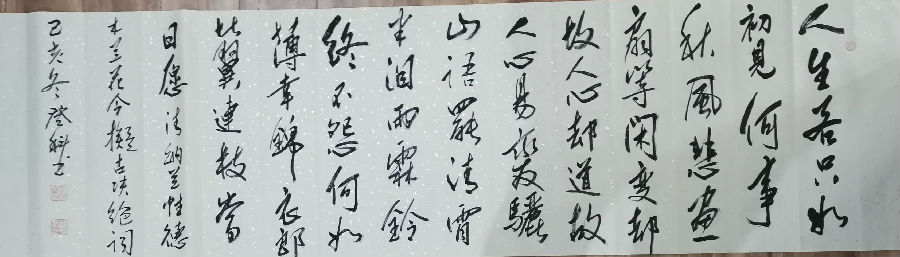 人生若只如
初見何事
秋風悲画
扇等閑变却
故人心却道故
人心易变驪
山語罷清宵
半泪雨霖鈴
終不怨何如
薄幸錦衣郎
比翼連枝當
日愿清纳兰性德
木兰花令擬古决絶詞
己亥冬登科书